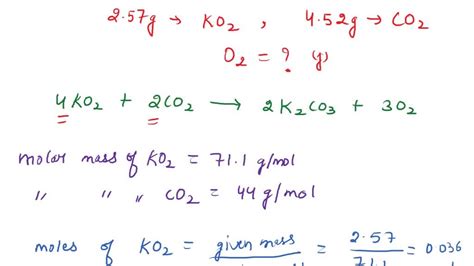 2.57g → KO₂ , 4.52g → CO₂
O₂ = ? g
4KO₂ + 2CO₂ → 2K₂CO₃ + 3O₂
molar mass of KO₂ = 71.1 g/mol
" " " CO₂ = 44 g/mol
moles of KO₂ = given mass = 2.57 = 0.036
71.1